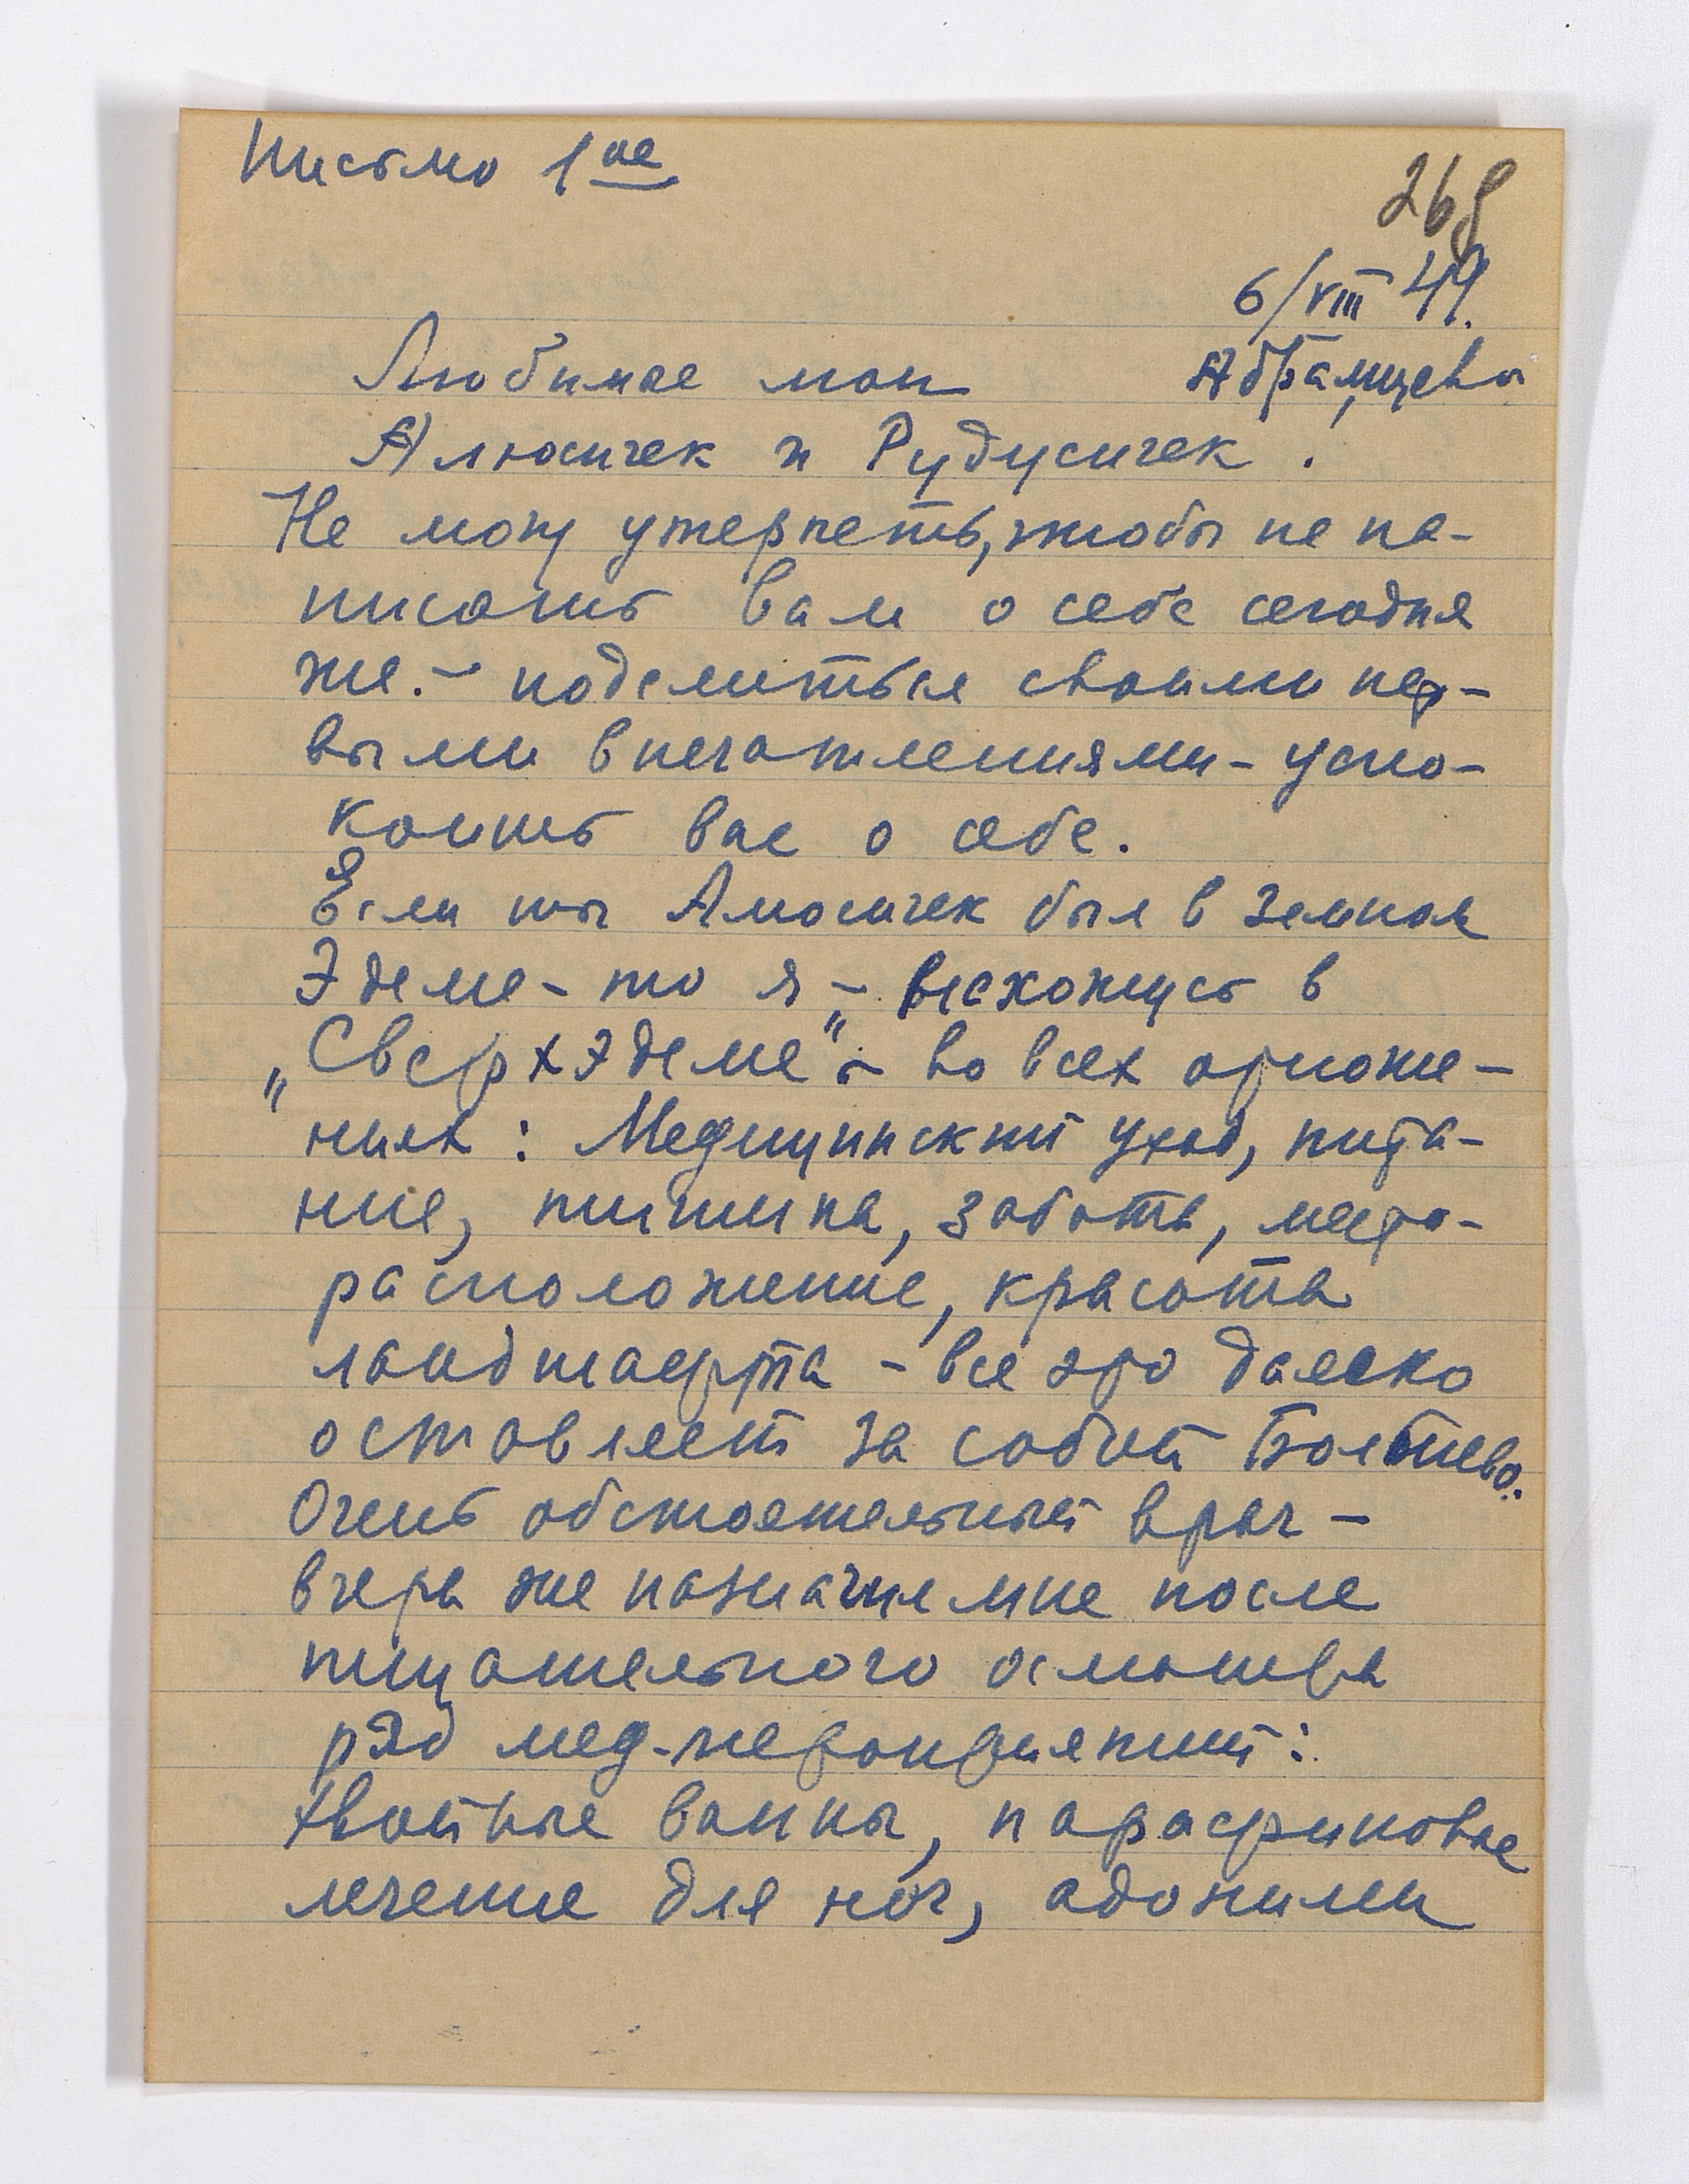 Письмо 1ое
269
6/VIII 49.
Абрамцево
Любимые мои
Алюсичек и Рудусичек!
Не могу утерпеть, чтобы не на-
писать Вам о себе сегодня
же. – поделиться своими пер-
выми впечатлениями – успо-
коить вас о себе.
Если ты Алюсичек был в земном
Эдеме – то я – нахожусь в
„Сверхэдеме" – во всех отноше-
ниях: Медицинский уход, пита-
ние, тишина, забота, место-
расположение, красота
ландшафта – все это далеко
оставляет за собой Болшево.
Очень обстоятельный врач –
вчера же назначил мне после
тщательного осмотра
ряд мед-мероприятий:
хвойные ванны, парафиновое
лечение для ног, адонилен